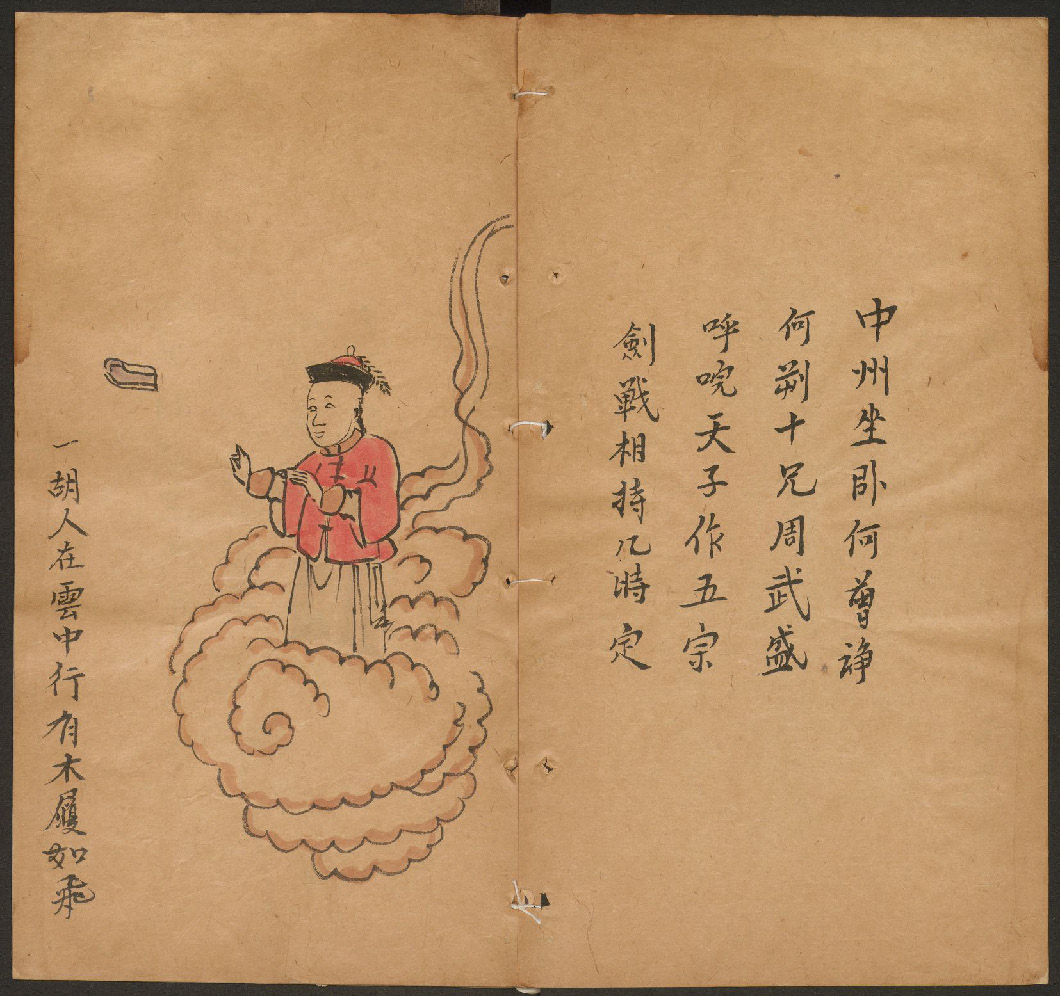 中州坐卧何曾諍
何荆十兄周武盛
呼喚天子作五宗
劍戰相持几時定
一胡人在雲中行有木履如飛